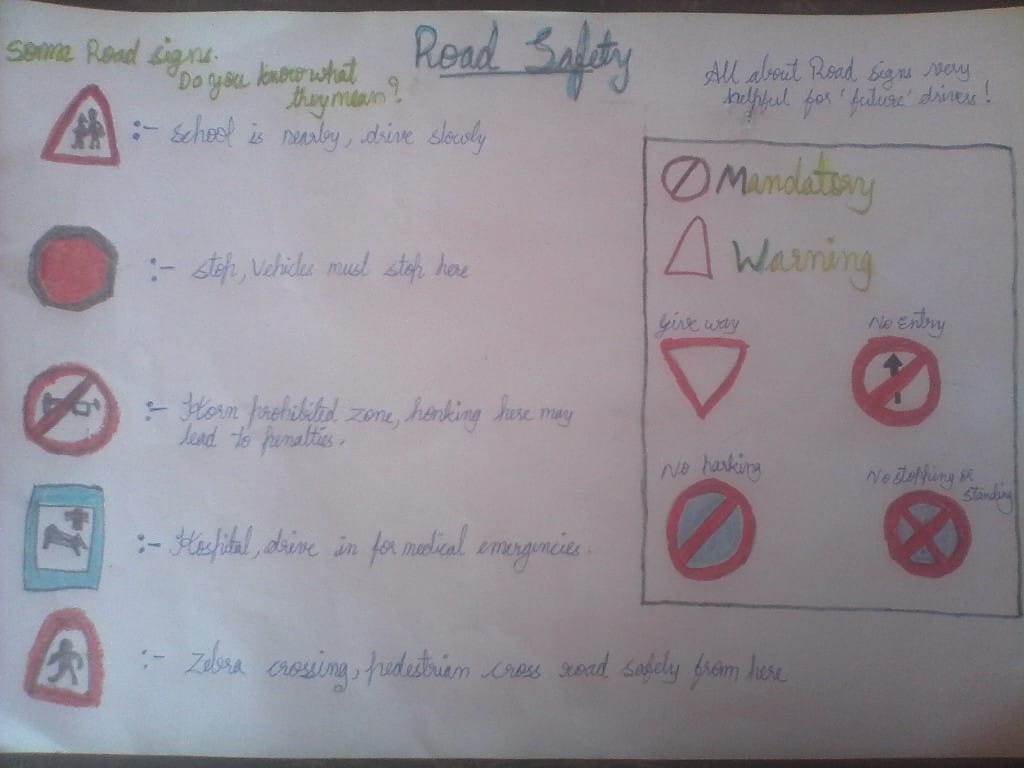 Road Safety
Some Road signs.
Do you know what
they mean?
:- School is nearby, drive slowly
:- Stop, Vehicles must stop here
:- Horn prohibited zone, honking here may
lead to penalties.
:- Hospital, drive in for medical emergencies.
:- Zebra crossing, pedestrian cross road safely from here
All about Road signs very
helpful for 'future' drivers!
Mandatory
Warning
Give way
No Entry
No parking
No stopping or
standing